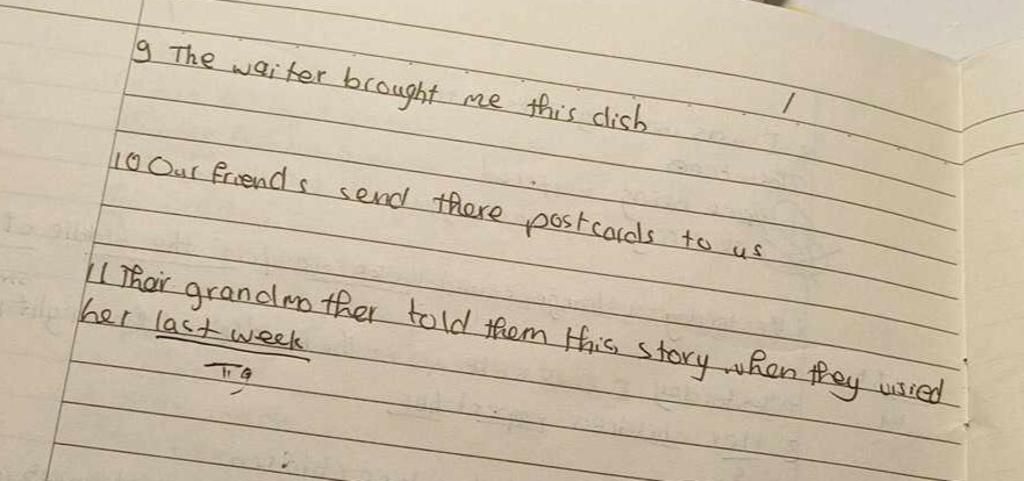 9 The waiter brought me this dish /
10 Our friends send there postcards to us
11 Their grandmother told them this story when they visied
her last week